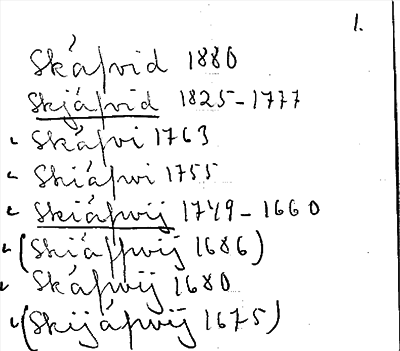 1.
Skáfvid 1880
Skjáfvid 1825-1777
Skáfvi 1763
Skiáfvi 1755
Skiáfvij 1749-1660
(Skiáffvij 1686)
Skáfvij 1680
(Skijáfvij 1675)